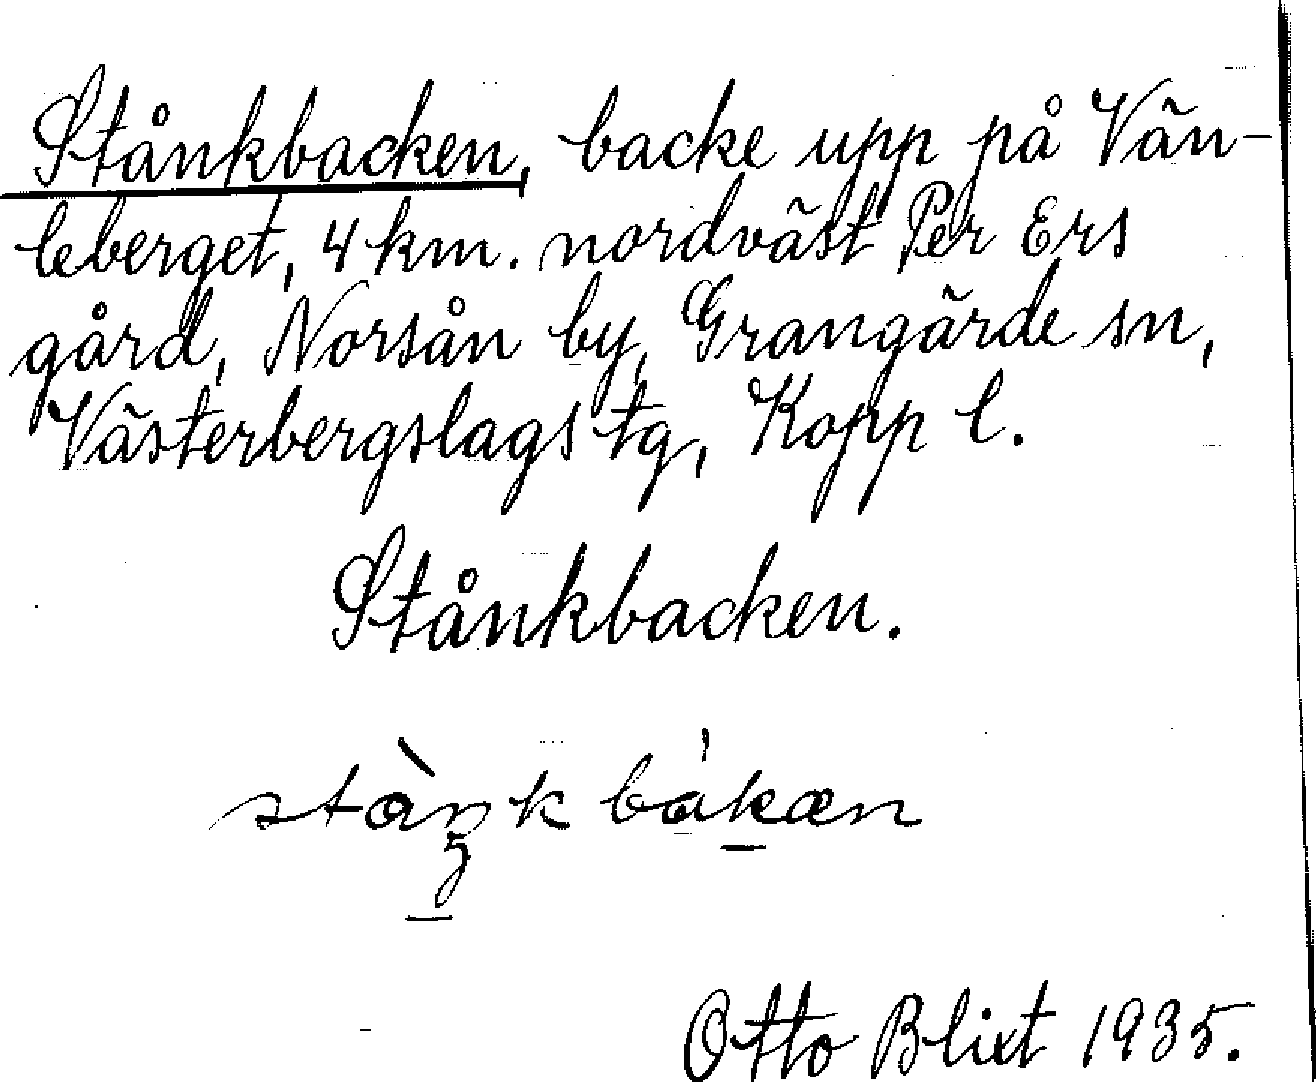 Stånkbacken, backe upp på Vän-
leberget, 4 km. nordväst Per Ers
gård, Norsån by, Grangärde sn,
Västerbergslags tg, Kopp l.
Stånkbacken.
stàŋk bákæn
Otto Blixt 1935.